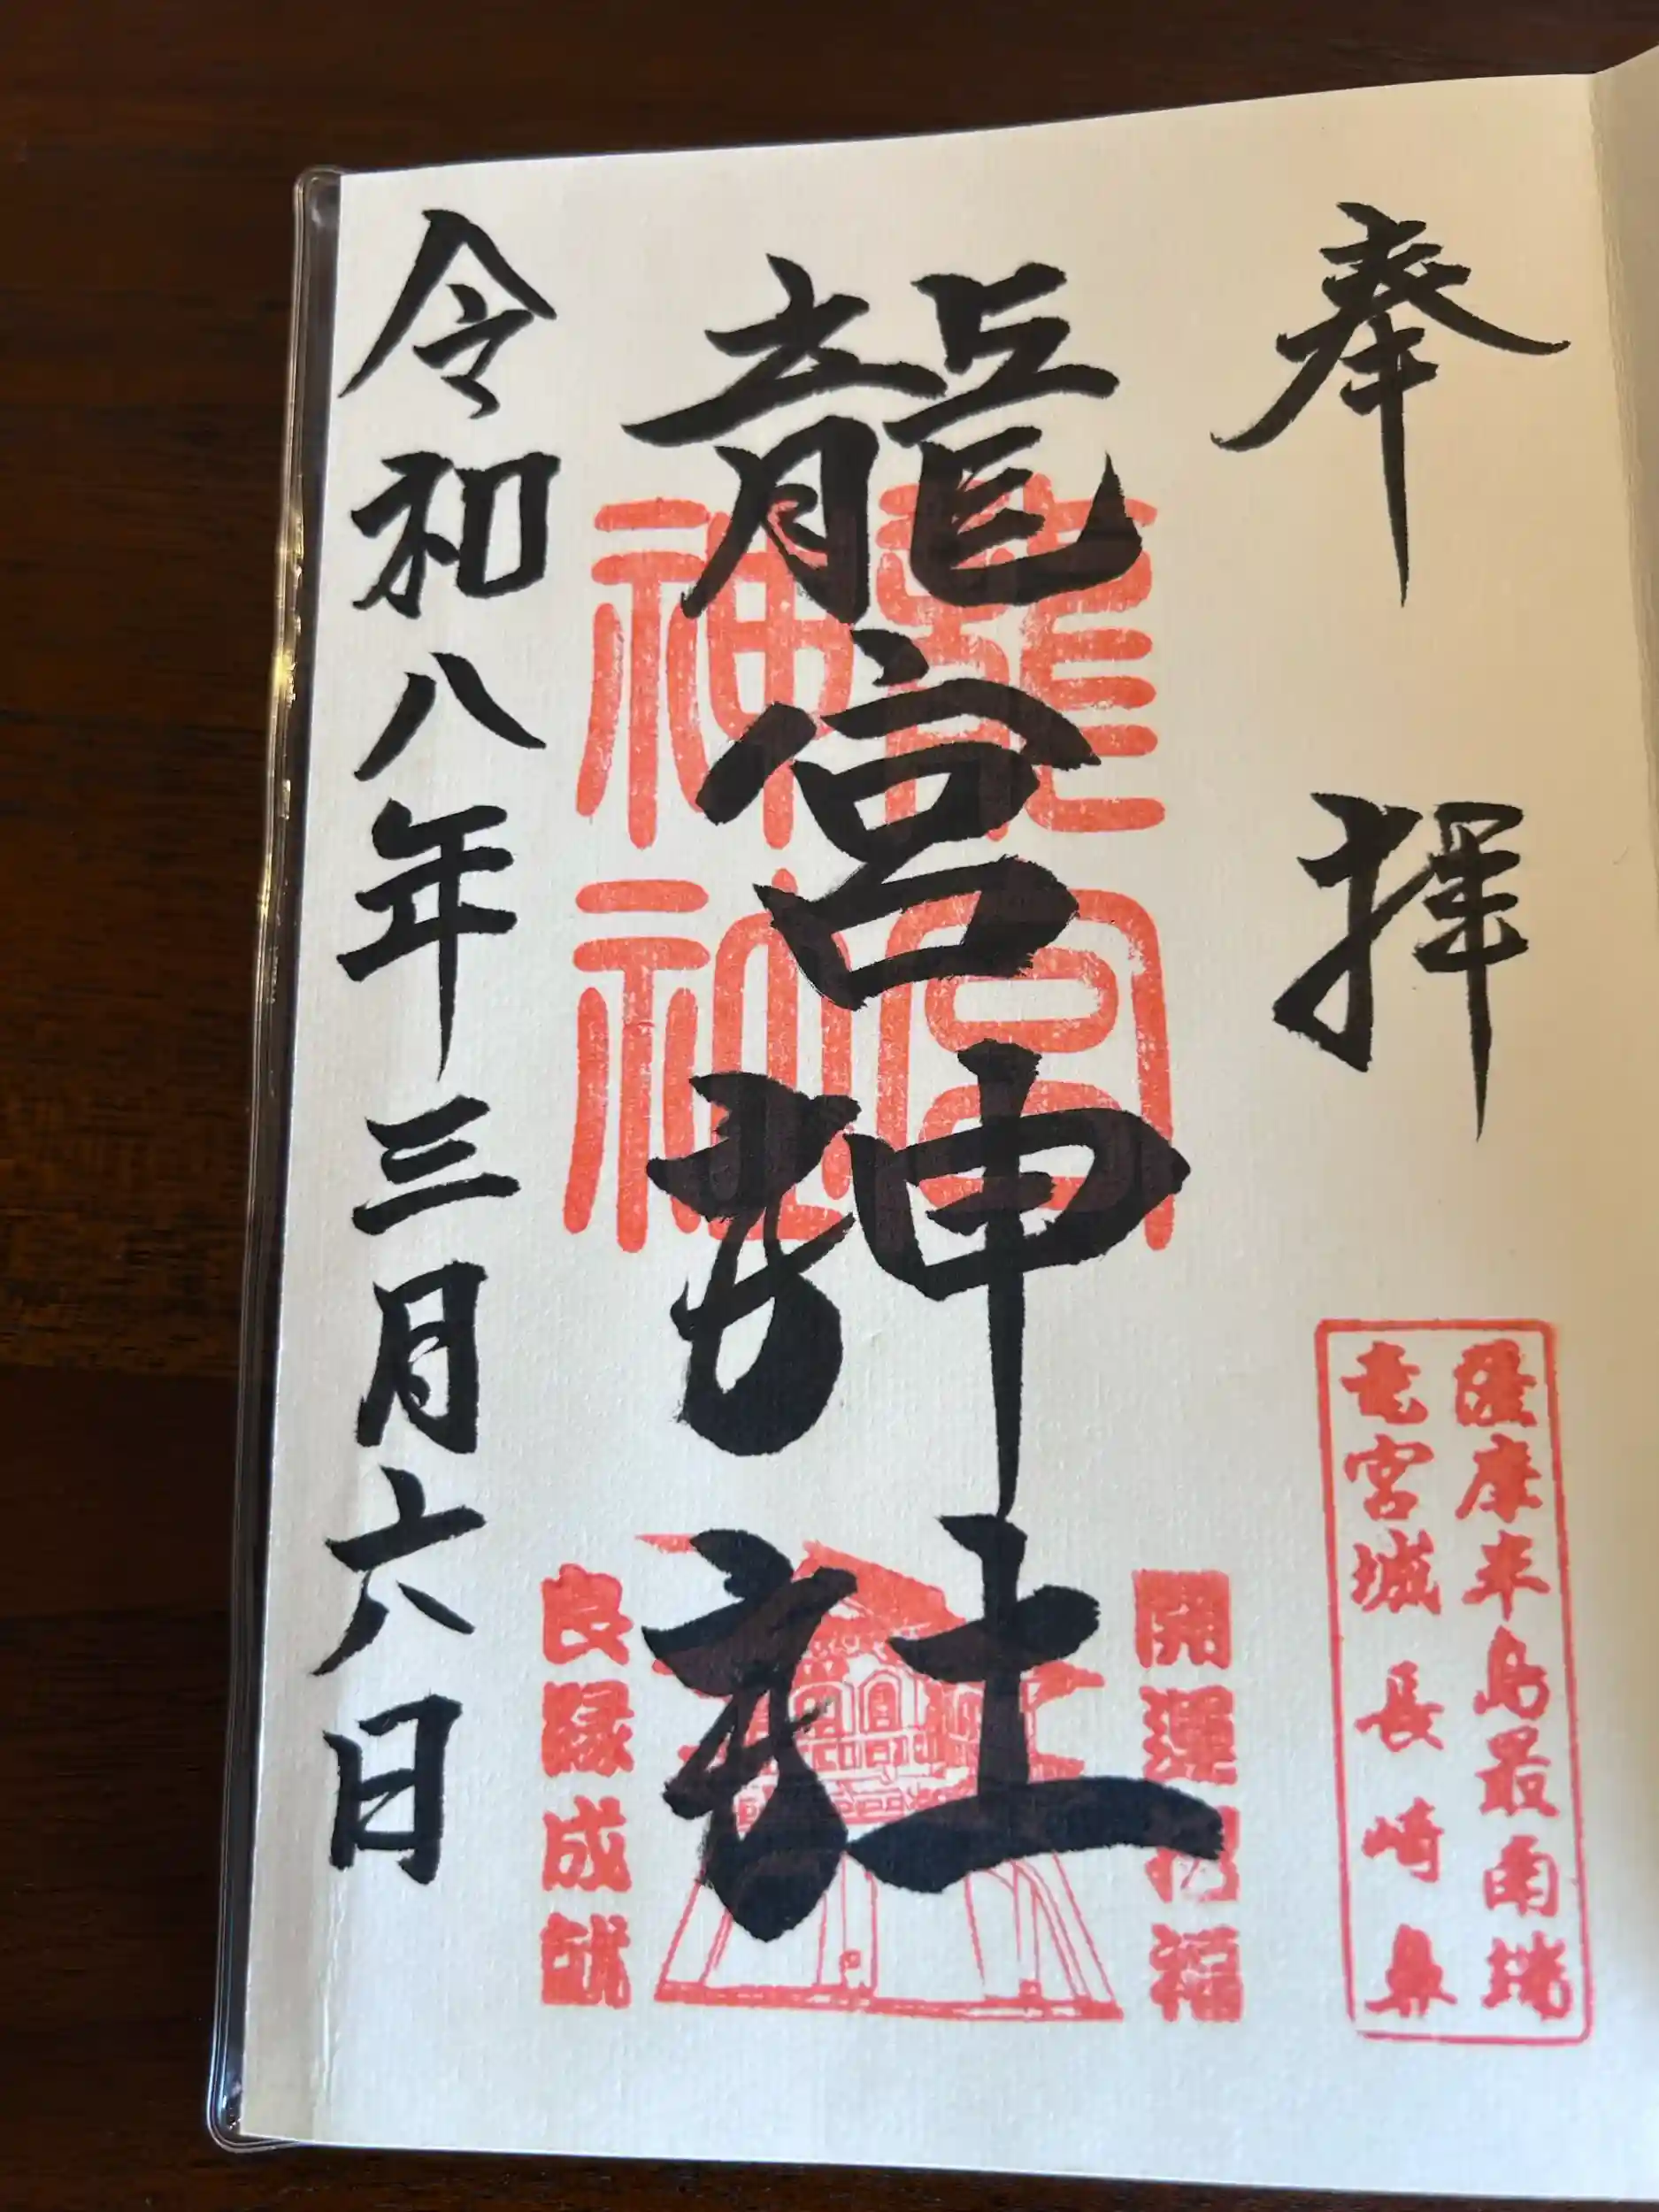 奉拝
薩摩半島最南端
竜宮城 長崎鼻
龍宮神社
龍宮
神社
開運招福
良縁成就
令和八年三月六日